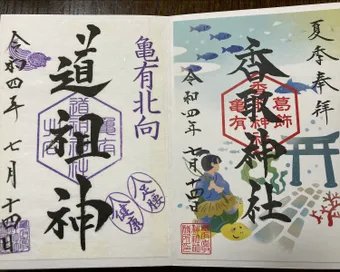 夏季奉拝
香取神社
葛飾
亀有
香取神社
令和四年 七月十四日
亀有北向
道祖神
道祖神社
亀有
令和四年 七月十四日
足腰
健康